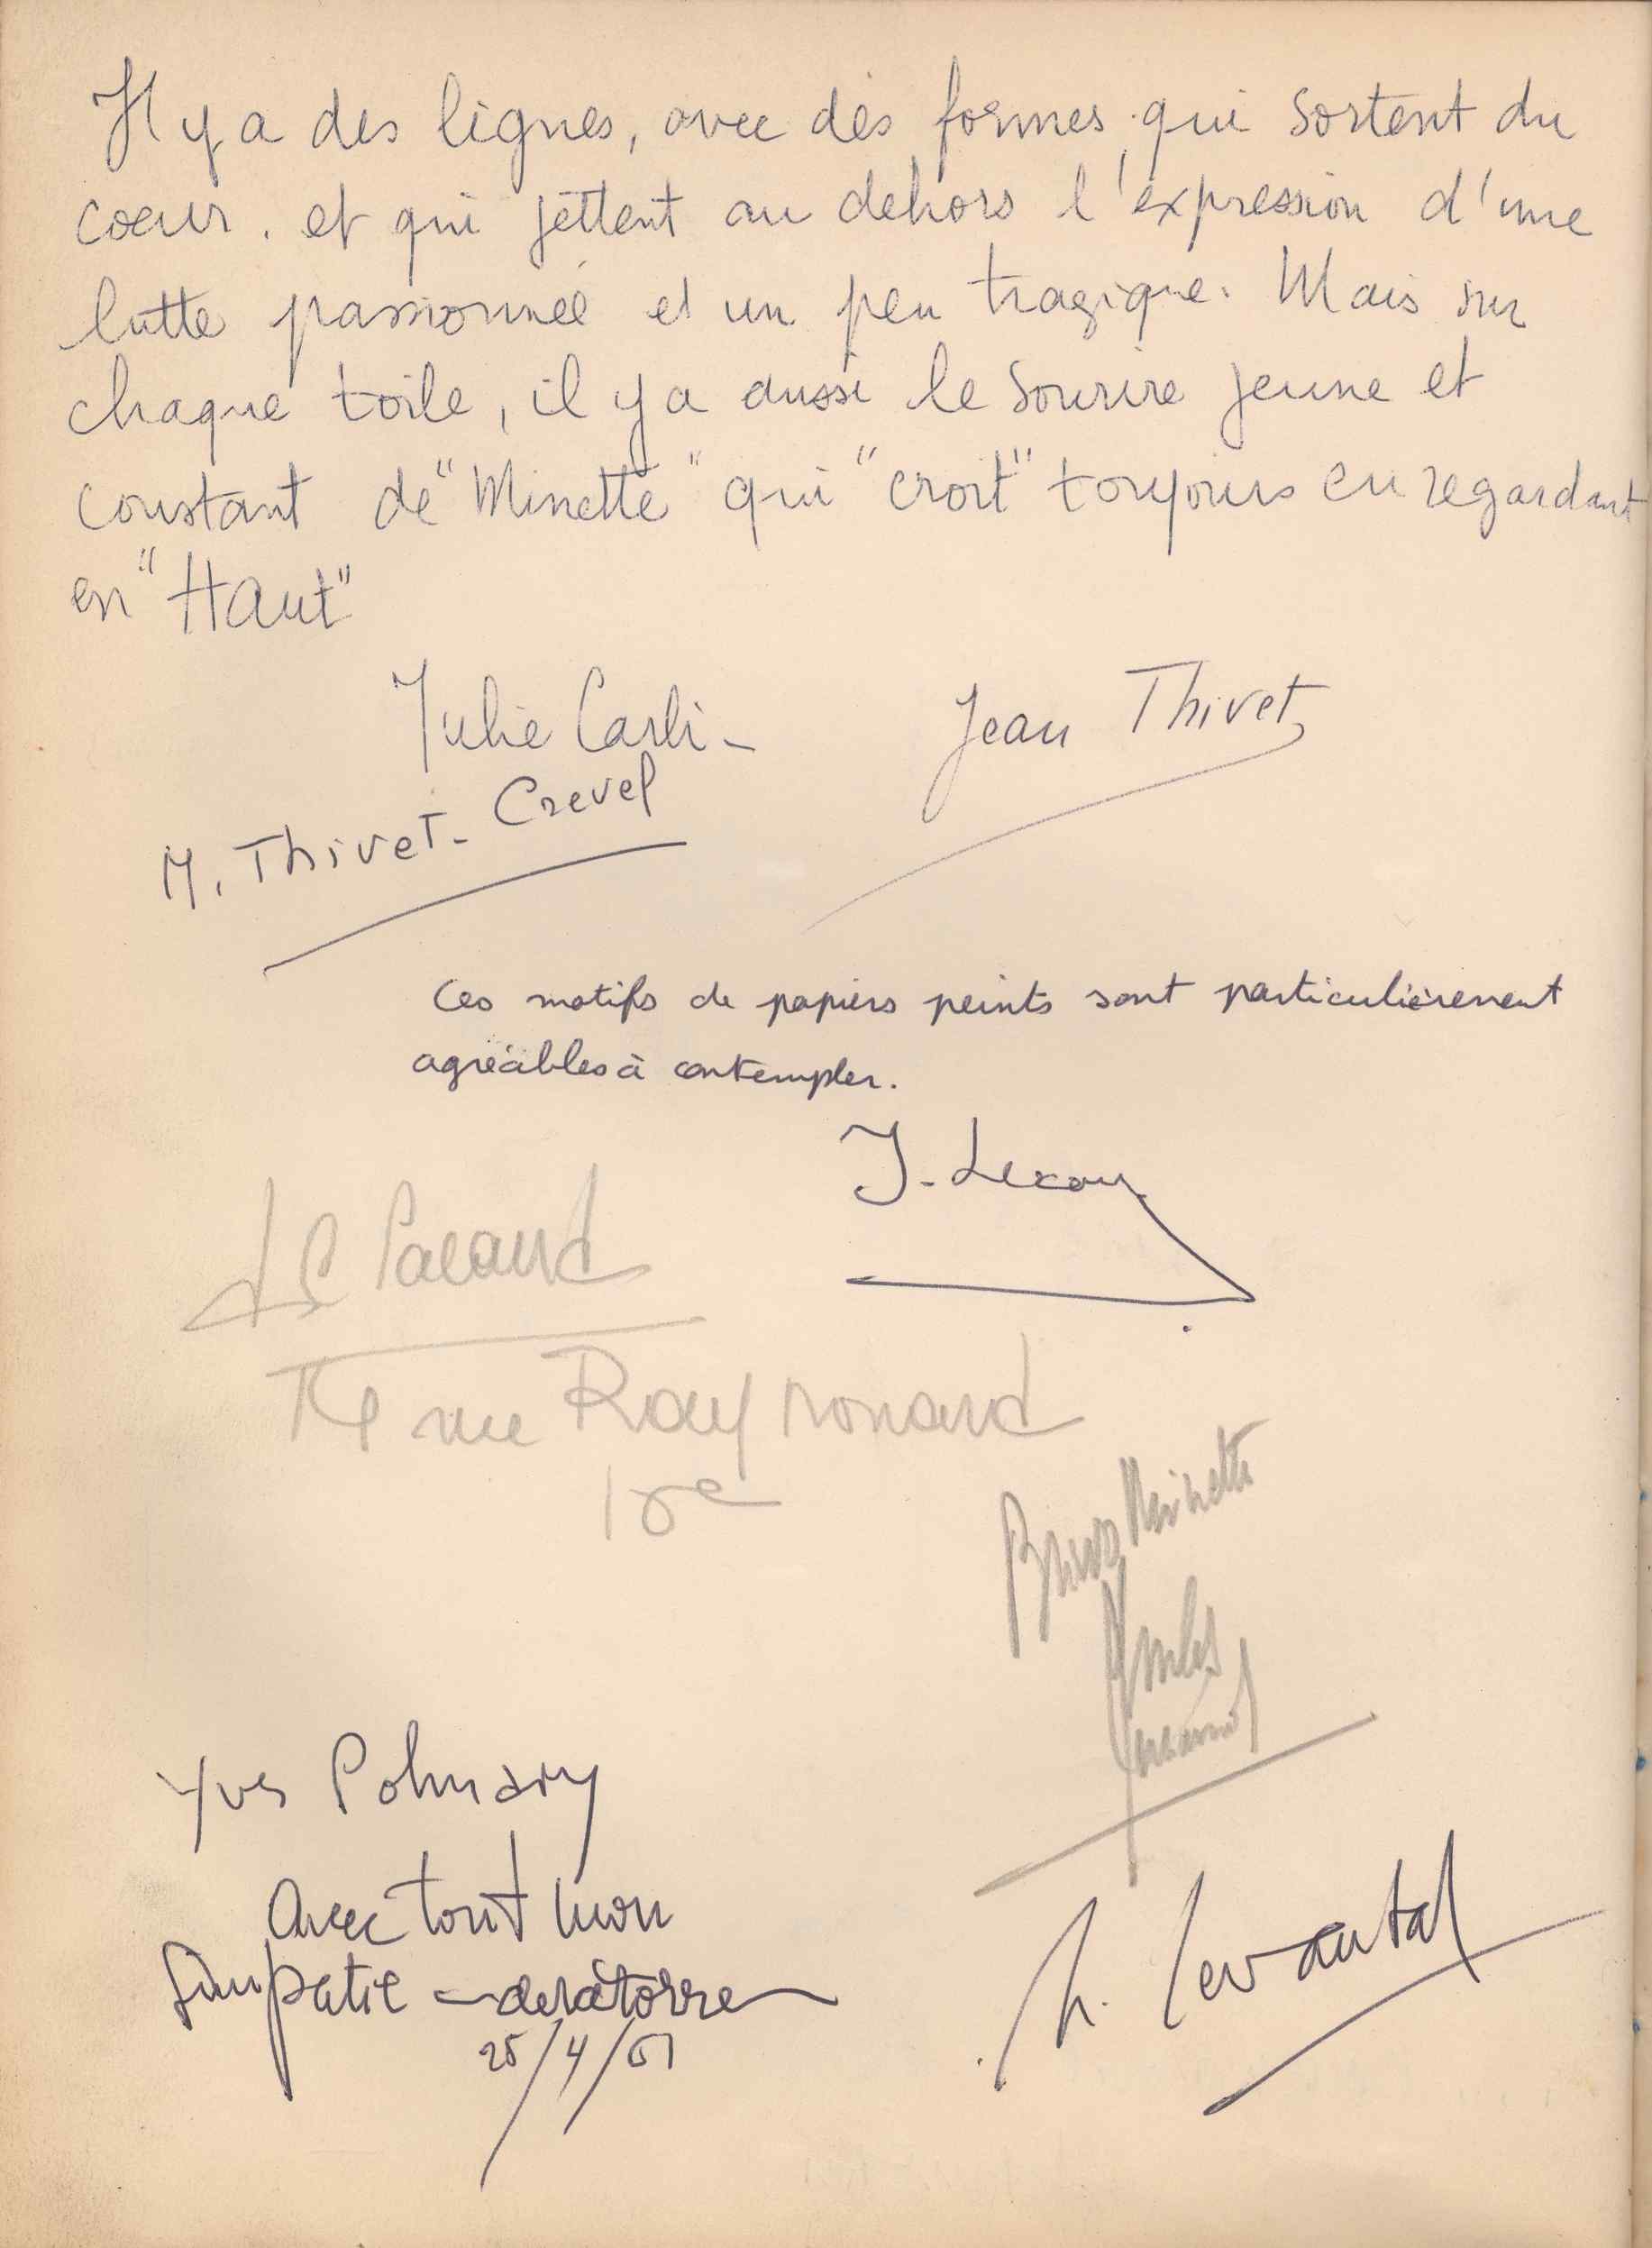 Il y a des lignes, avec des formes qui sortent du
coeur. et qui jettent au dehors l'expression d'une
lutte passionnée et un peu tragique. Mais sur
chaque toile, il y a aussi le sourire jeune et
constant de "Minette" qui "croit" toujours en regardant
en "Haut"
Julie Carli -
Jean Thivet
M. Thivet-Crevel
Ces motifs de papiers peints sont particulièrement
agréables à contempler.
J.
rue Raynouard
Bravo Minette
Yves
avec tout mon
simpatie
25/4/51
Levantal